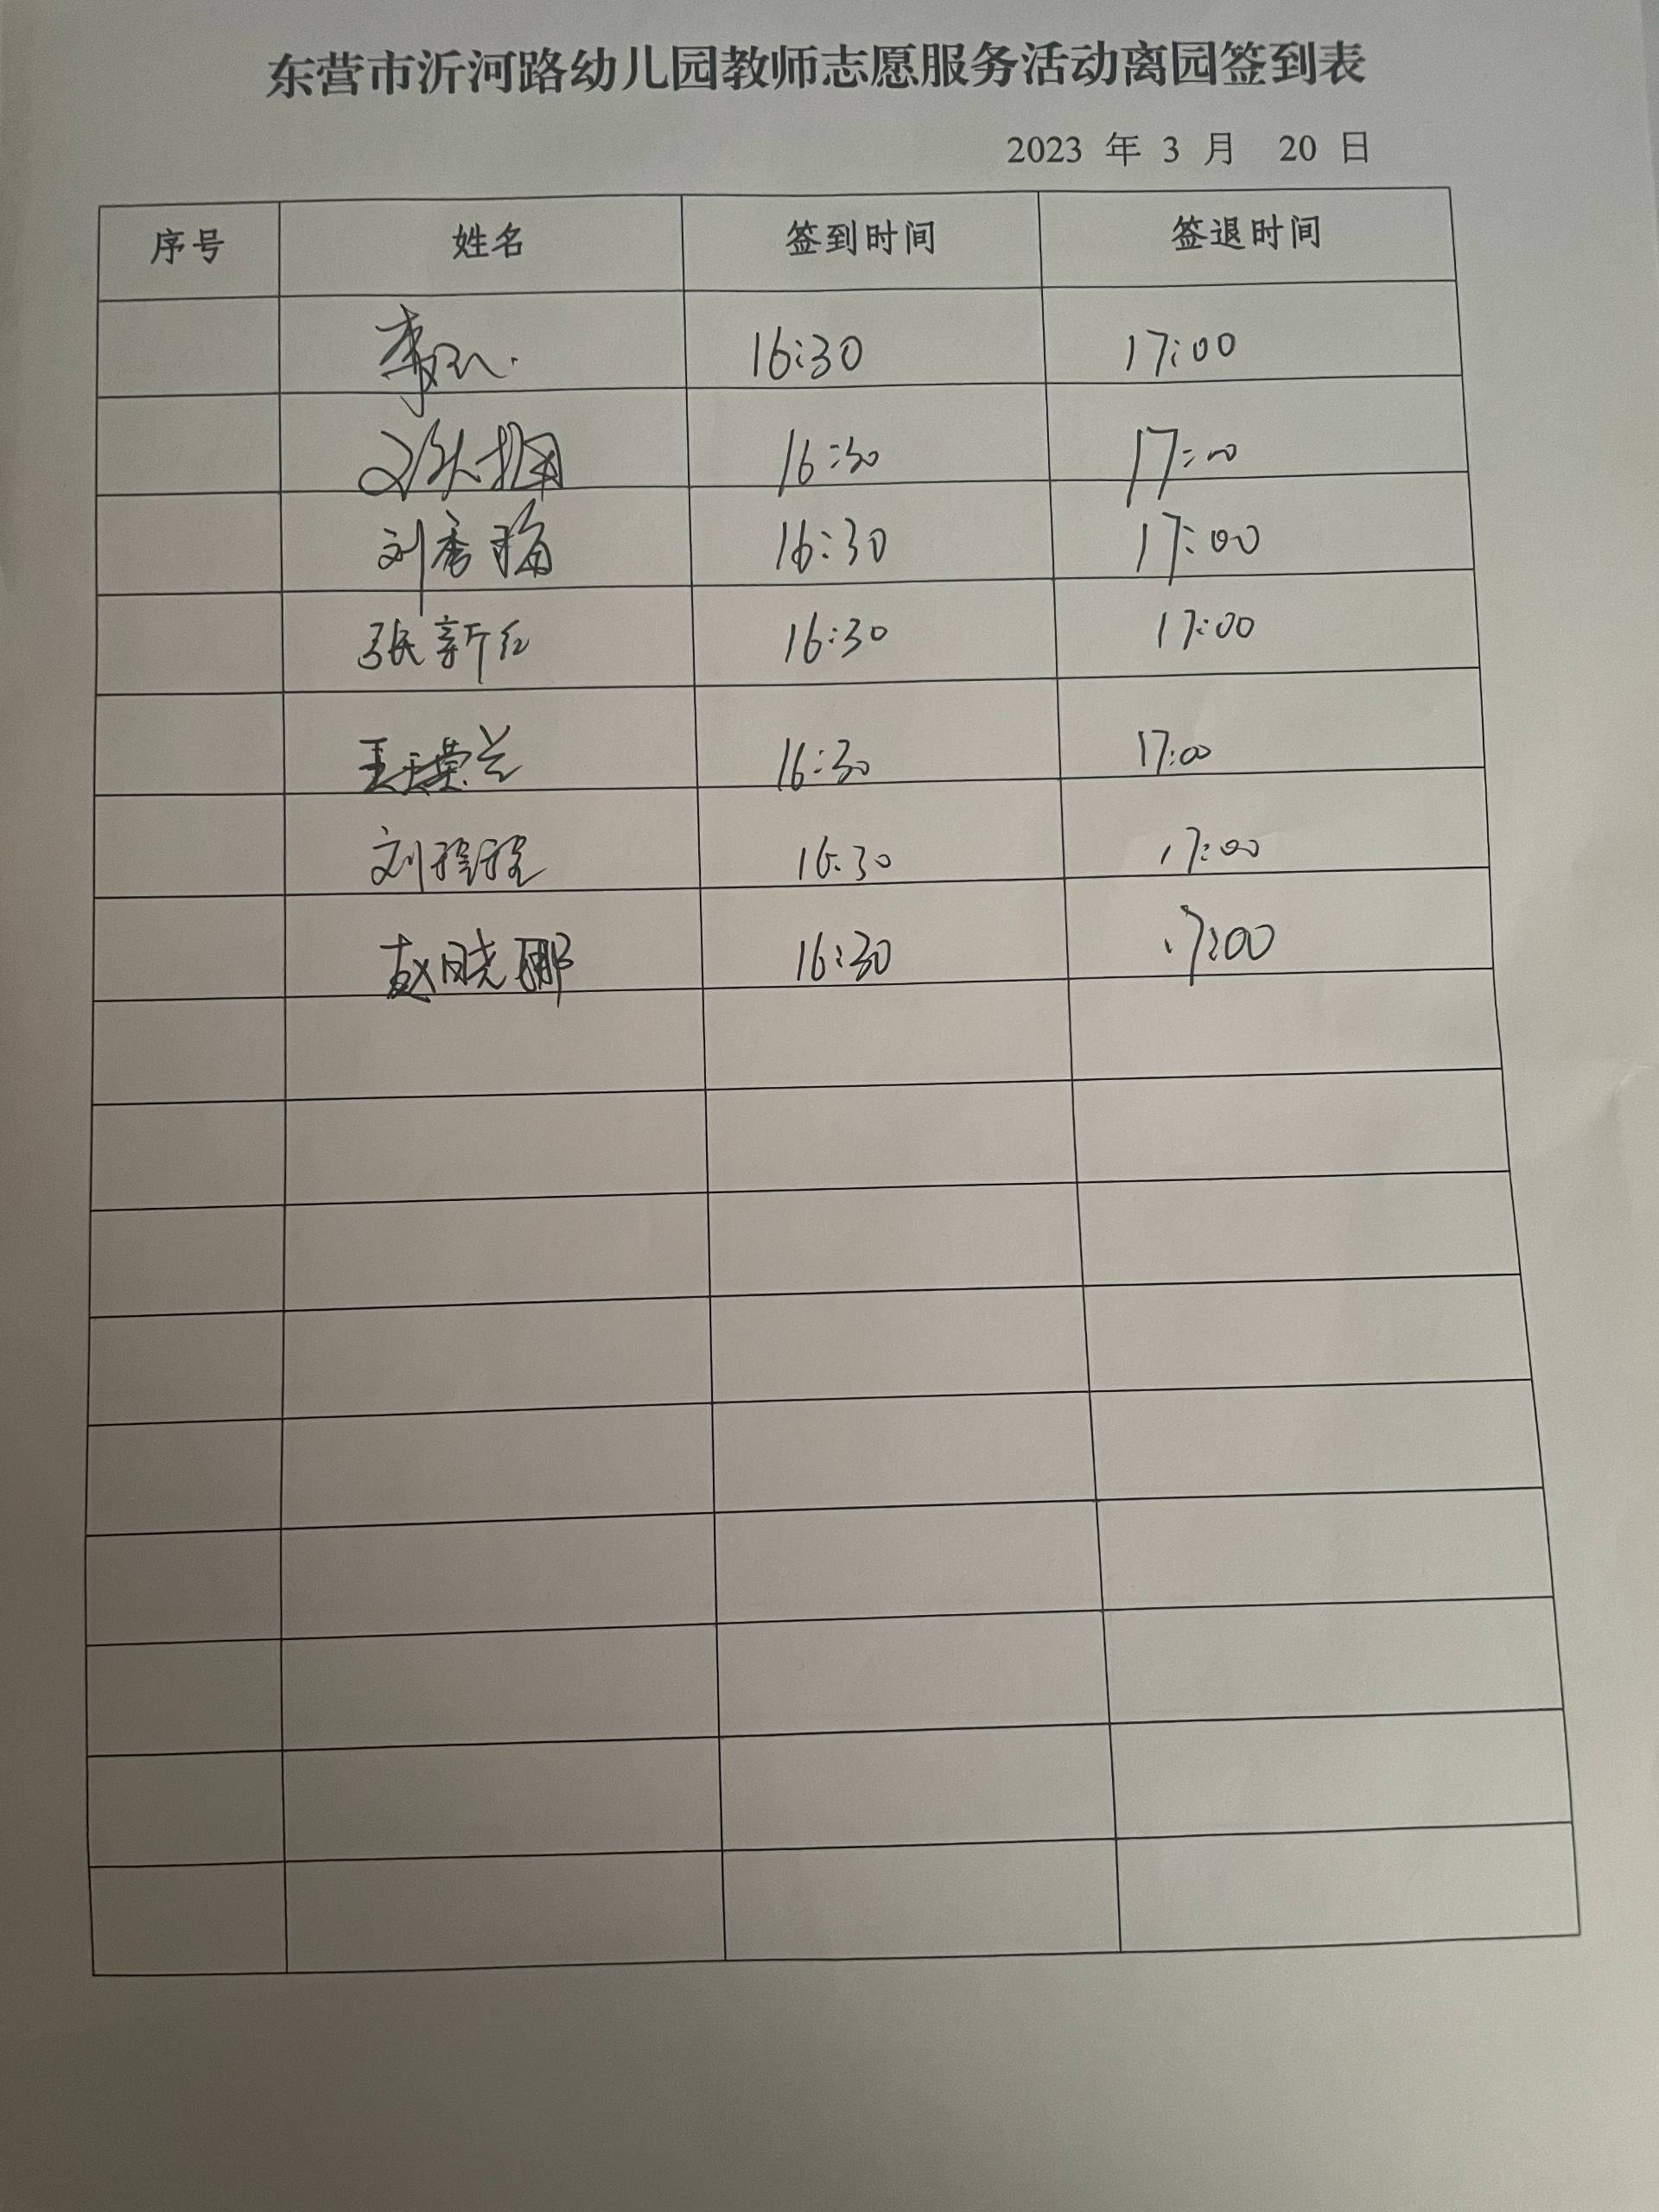 东营市沂河路幼儿园教师志愿服务活动离园签到表
2023 年 3 月 20 日
序号 姓名 签到时间 签退时间
李 16:30 17:00
16:30 17:00
刘秀梅 16:30 17:00
张新红 16:30 17:00
王玉荣兰 16:30 17:00
刘程程 16:30 17:00
赵晓娜 16:30 17:00